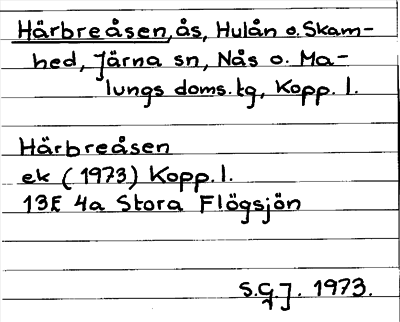 Härbreåsen, ås, Hulån o. Skam-
hed, Järna sn, Nås o. Ma-
lungs doms. tg, Kopp. l.
Härbreåsen
ek (1973) Kopp. l.
13E 4a Stora Flögsjön
S.G.J. 1973.